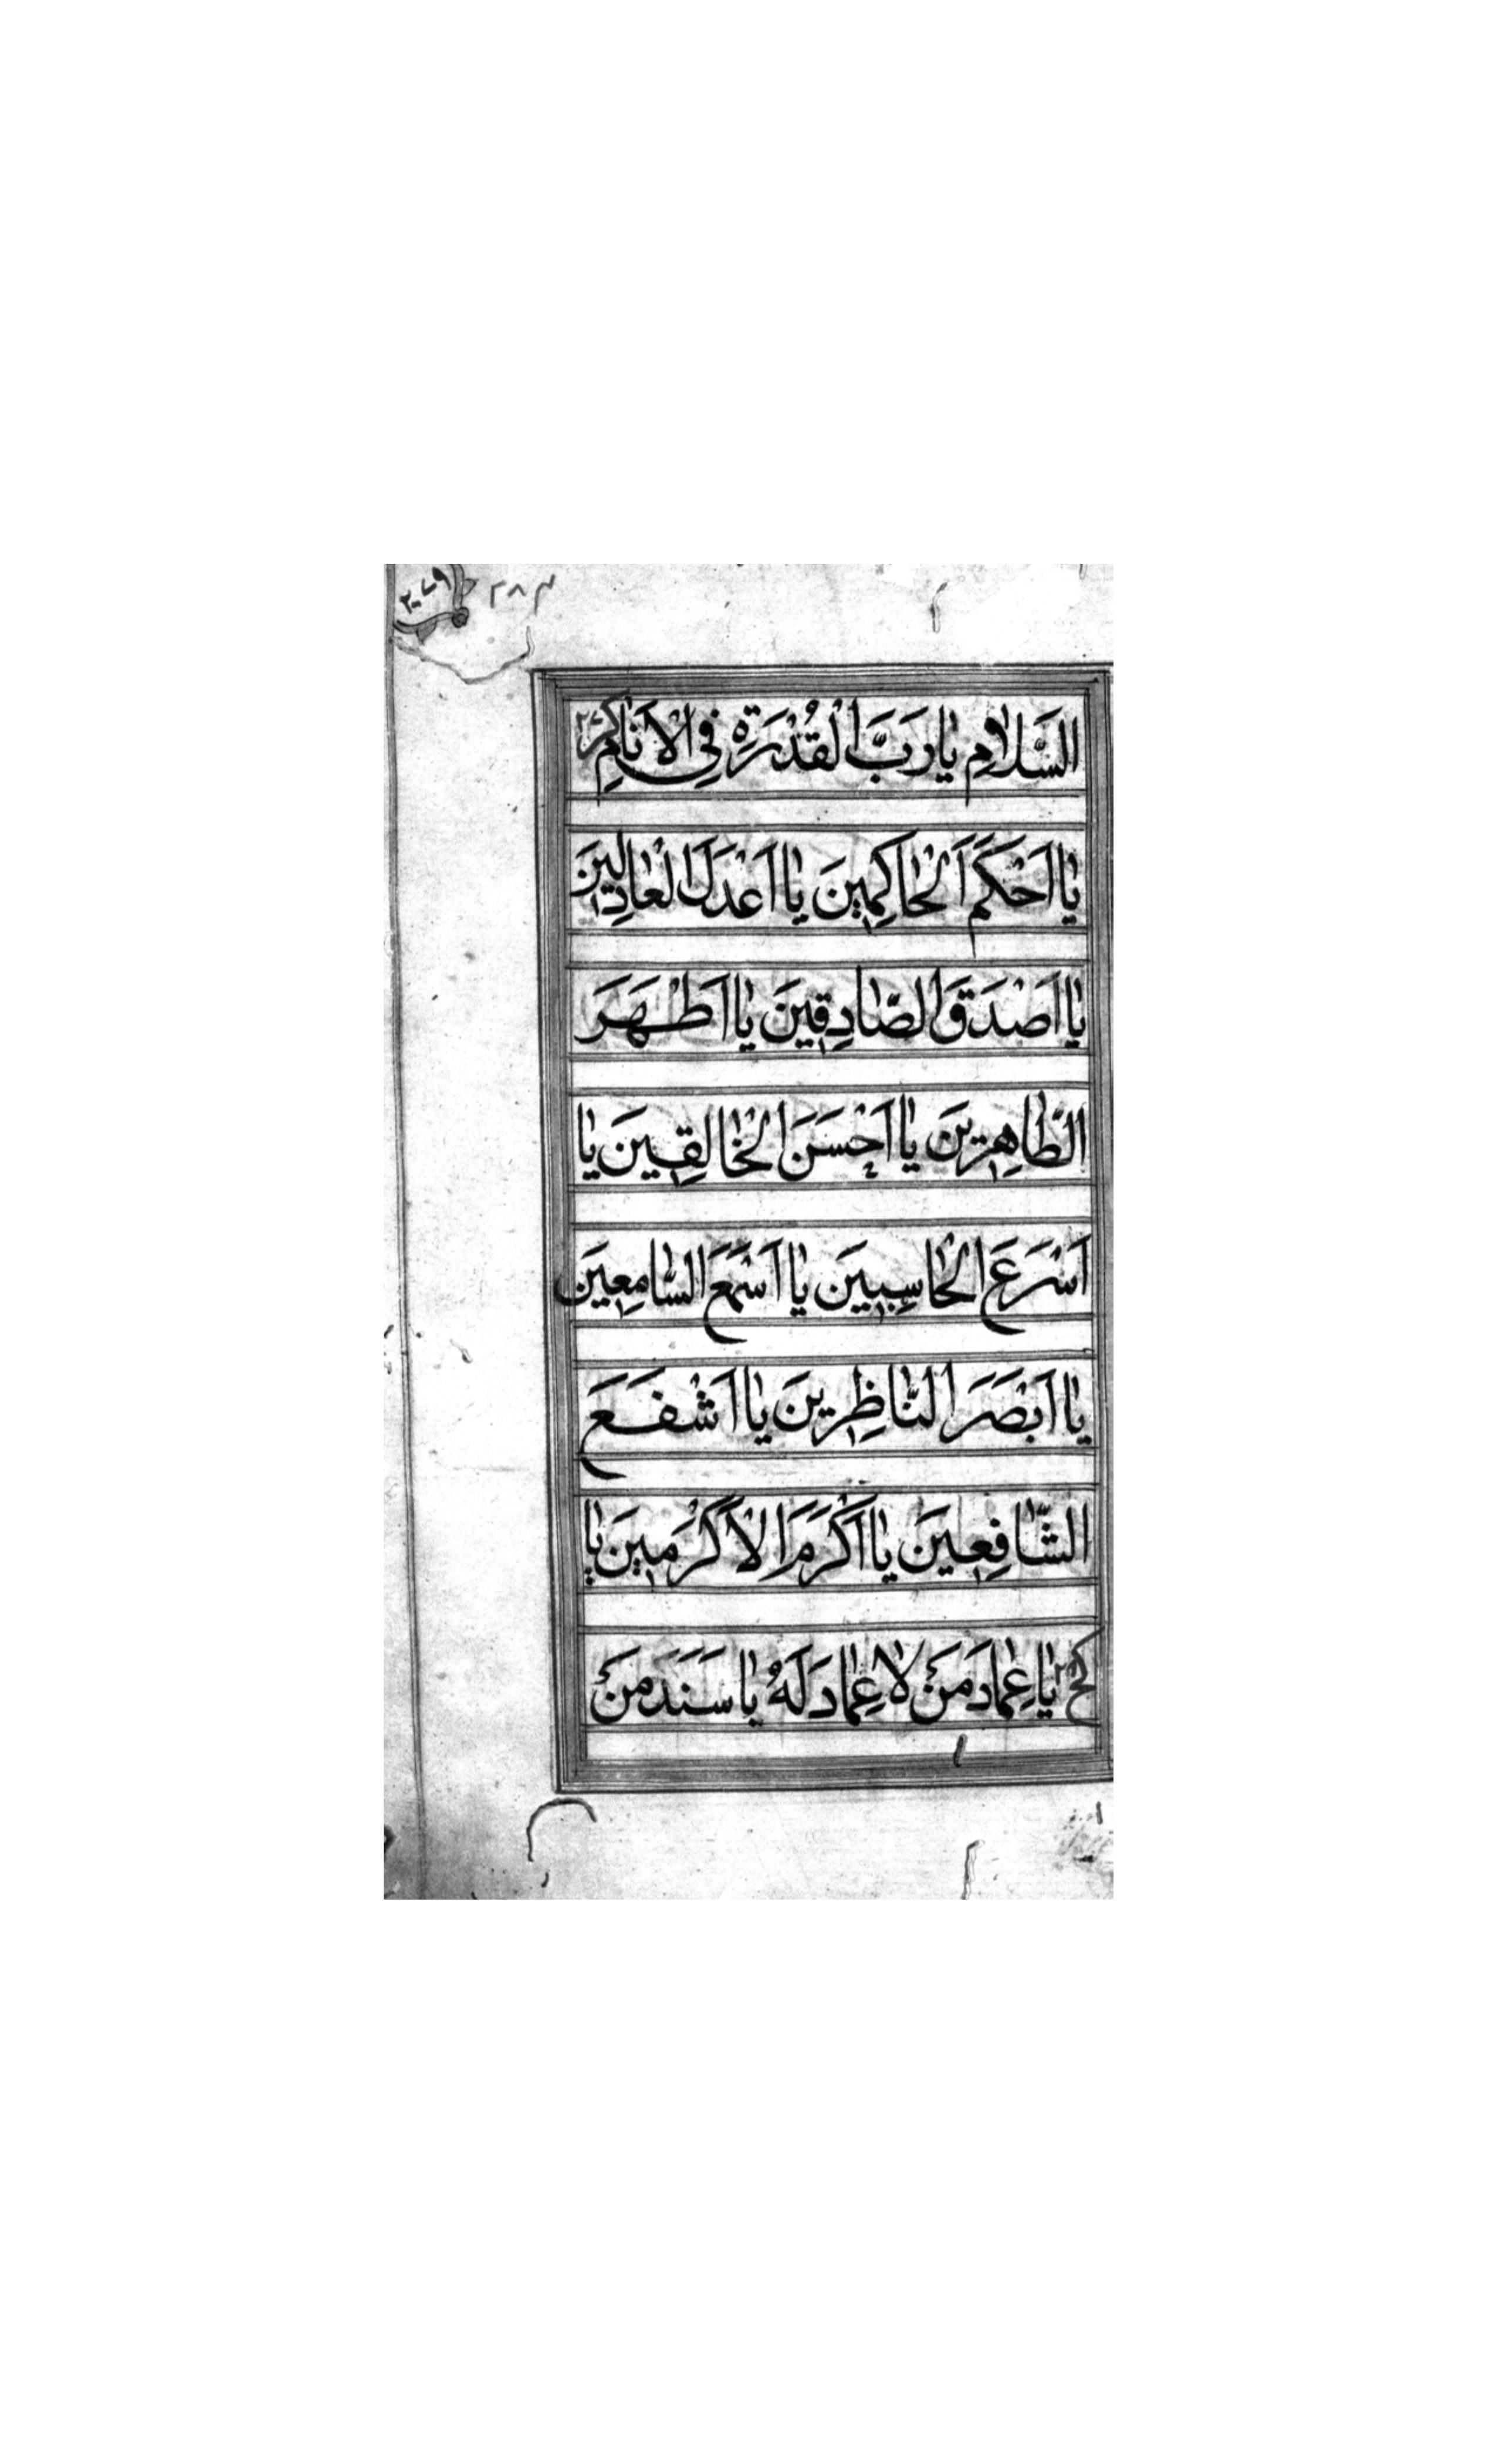 ٢٠٧٩ ٢٨٣
السَّلامِ يا رَبَّ الْقُدْرَةِ فِي الْاَنامِ
يا اَحْكَمَ الْحاكِمينَ يا اَعْدَلَ الْعادِلينَ
يا اَصْدَقَ الصّادِقينَ يا اَطْهَرَ
الطّاهِرينَ يا اَحْسَنَ الْخالِقينَ يا
اَسْرَعَ الْحاسِبينَ يا اَسْمَعَ السّامِعينَ
يا اَبْصَرَ النّاظِرينَ يا اَشْفَعَ
الشّافِعينَ يا اَكْرَمَ الْاَكْرَمينَ
كح يا عِمادَ مَنْ لا عِمادَ لَهُ يا سَنَدَ مَنْ